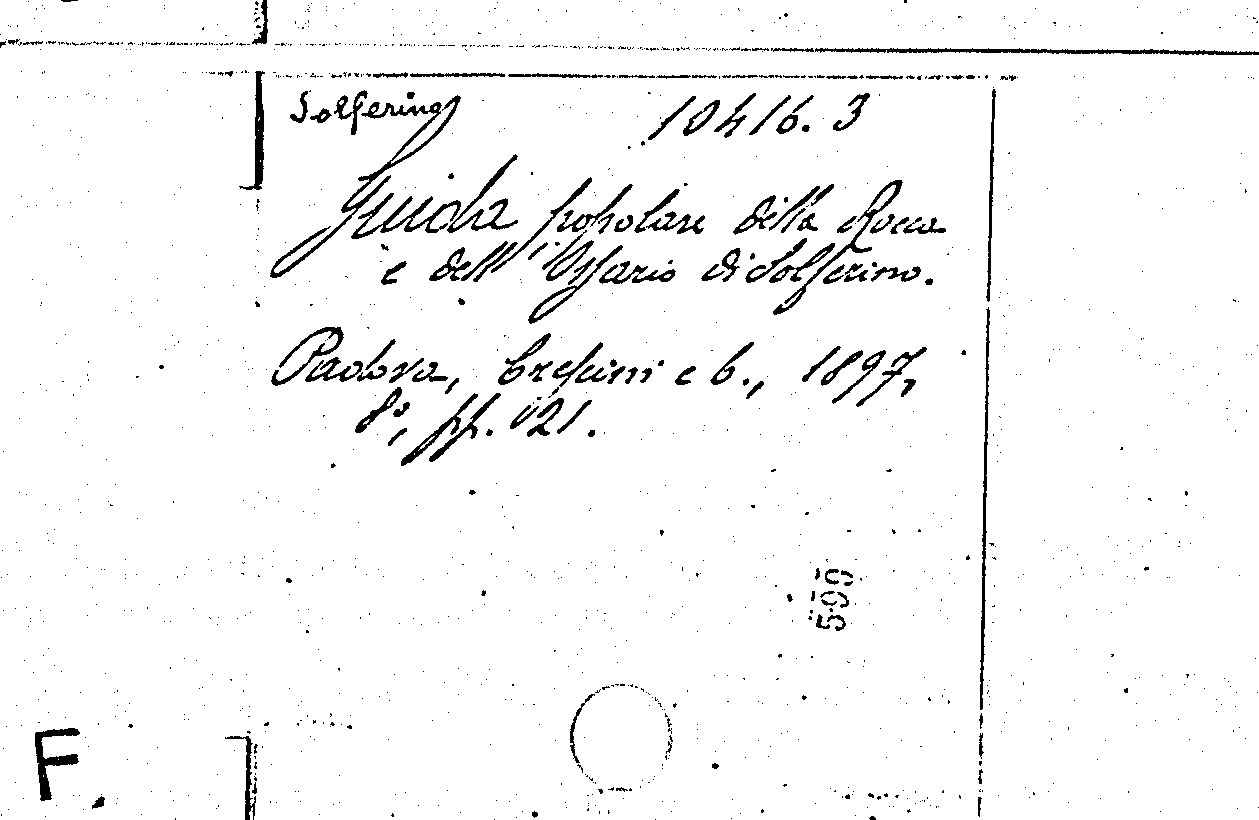 Solferino
10416. 3
Guida popolare della Rocca
e dell'Ossario di Solferino.
Padova, Crescini e C., 1897,
8°, pp. 121.
599
F